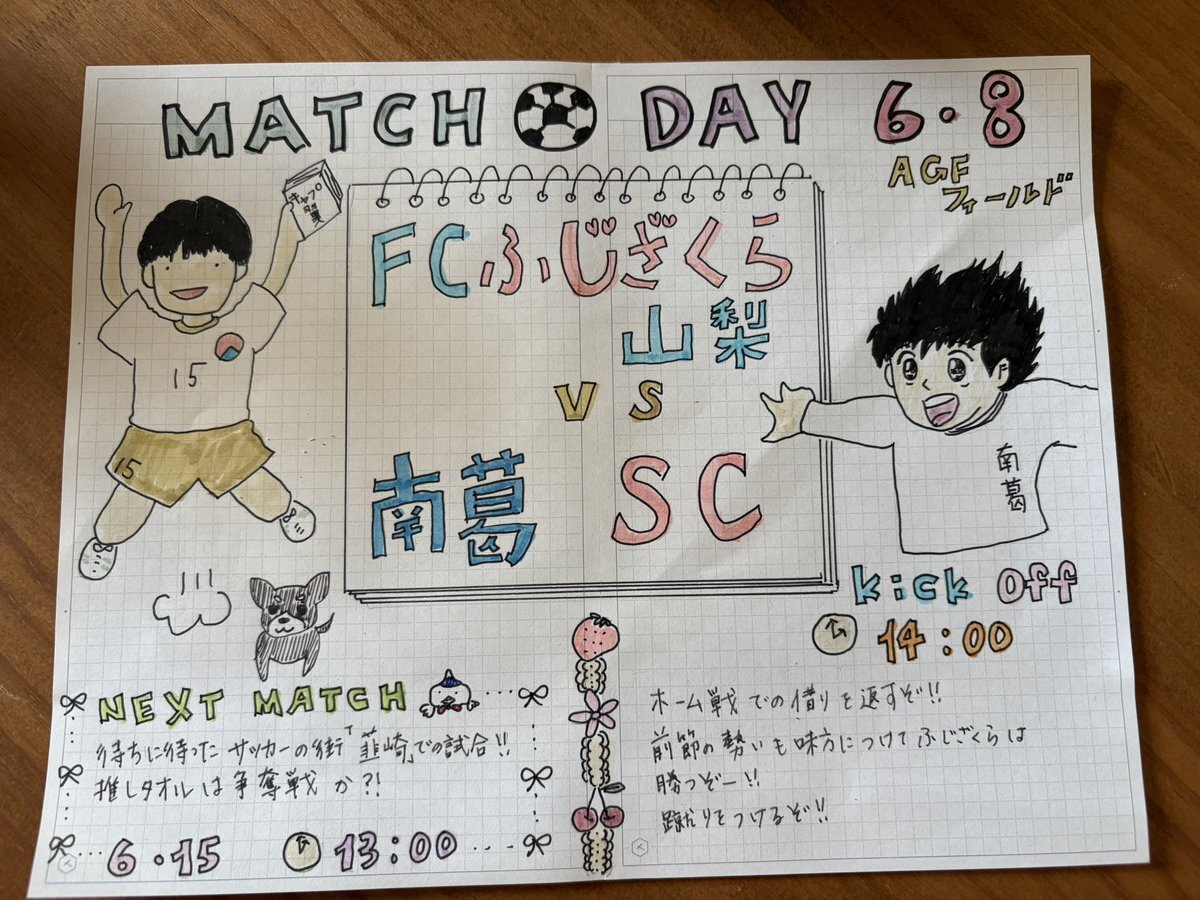 MATCH DAY 6・8
AGF
フィールド
キャプ
翼
15
15
FCふじざくら
山梨
VS
南葛 SC
南葛
kick off
14:00
NEXT MATCH
待ちに待った サッカーの街「韮崎」での試合!!
推しタオルは争奪戦か?!
6・15 13:00
ホーム戦での借りを返すぞ!!
前節の勢いも味方につけてふじざくらは
勝つぞー!!
蹴りをつけるぞ!!